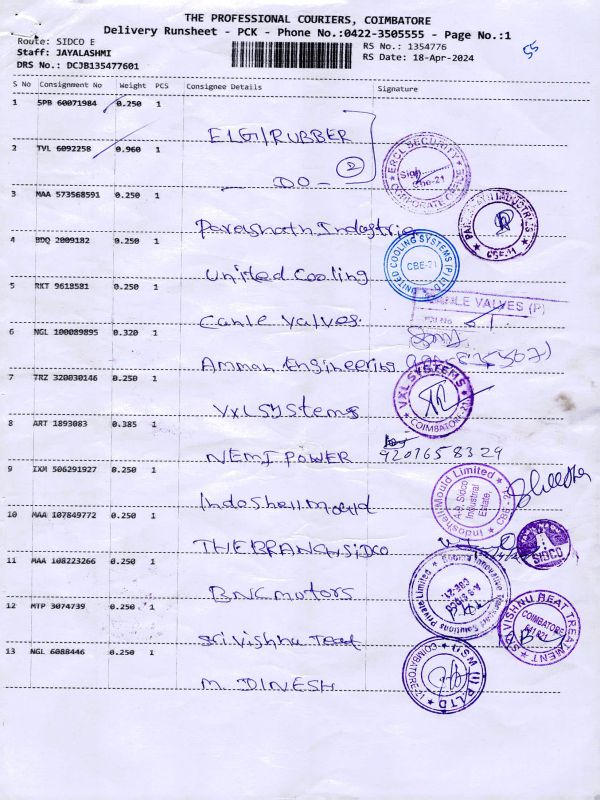 THE PROFESSIONAL COURIERS, COIMBATORE
Delivery Runsheet - PCK - Phone No.:0422-3505555 - Page No.:1
Route: SIDCO E
RS No.: 1354776
55
Staff: JAYALASHMI
RS Date: 18-Apr-2024
DRS No.: DCJB135477601
S No Consignment No Weight PCS Consignee Details Signature
1 SPB 60071984 0.250 1
ELGI/RUBBER
2 TVL 6092258 0.960 1
DO
2
ERCL SECURITY
CORPORATE
CBE-21
3 MAA 573568591 0.250 1
Parasnath Industrie
INDUSTRIES
CBE-21
4 BDQ 2009182 0.250 1
United Cooling
UNITED COOLING SYSTEMS (P) LTD
CBE-21
5 RKT 9618581 0.250 1
Canle Valves
BLE VALVES (P)
6 NGL 100089895 0.320 1
Amman Engineering
7 TRZ 320030146 0.250 1
VXL SYStems
VXL SYSTEMS
COIMBATORE
8 ART 1893083 0.385 1
NEMI POWER
9201658329
9 IXM 506291927 0.250 1
Indo Shell Moeld
Indoshell Mould Limited
A-9, Sidco
Industrial
Estate,
10 MAA 107849772 0.250 1
THE BRANCH SIDCO
SIDCO
11 MAA 108223266 0.250 1
BNC motors
Solutions Private Limited
12 MTP 3074739 0.250 1
Sri Vishnu
SRI VISHNU HEAT TREATMENT
COIMBATORE
13 NGL 6088446 0.250 1
M. DINESH
COIMBATORE